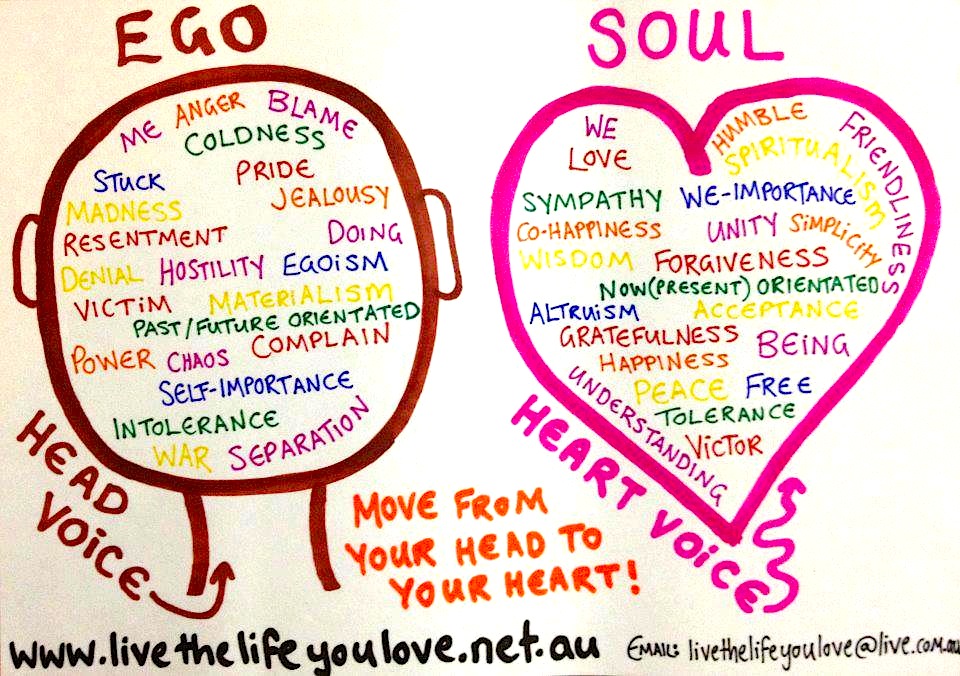 EGO
ME ANGER BLAME
COLDNESS
STUCK PRIDE
MADNESS JEALOUSY
RESENTMENT DOING
DENIAL HOSTILITY EGOiSM
VICTiM MATERiALiSM
PAST/FUTURE ORIENTATED
POWER CHAOS COMPLAIN
SELF-IMPORTANCE
INTOLERANCE
WAR SEPARATION
HEAD
VOiCE
SOUL
WE HUMBLE FRIENDLINESS
LOVE SPIRITUALISM
SYMPATHY WE-IMPORTANCE
CO-HAPPINESS UNITY SiMPLiCiTY
WISDOM FORGIVENESS
NOW(PRESENT) ORIENTATED
ALTRUiSM ACCEPTANCE
GRATEFULNESS BEiNG
HAPPINESS
UNDERSTANDING PEACE FREE
TOLERANCE
ViCTOR
HEART VOiCE
MOVE FROM
YOUR HEAD TO
YOUR HEART!
www.livethelifeyoulove.net.au EMAIL: livethelifeyoulove@live.com.au